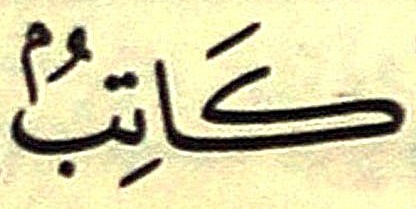 كَاتِبُۢ